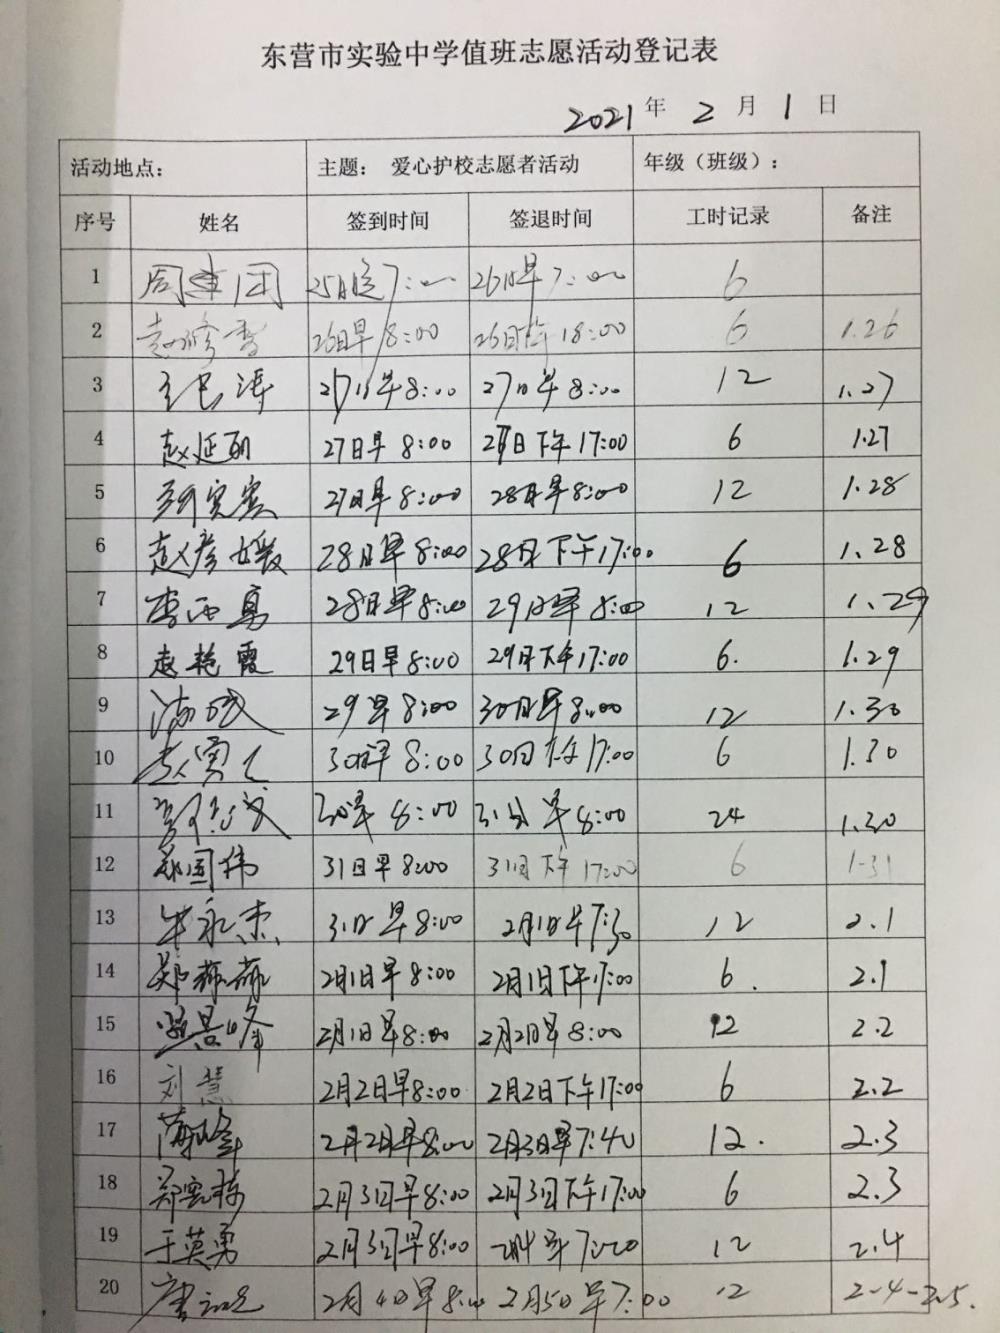 东营市实验中学值班志愿活动登记表
2021 年 2 月 1 日
活动地点： 主题： 爱心护校志愿者活动 年级（班级）：
序号 姓名 签到时间 签退时间 工时记录 备注
1 25日晚7:00 26日早7:00 6
2 赵修香 26日早8:00 26日下午18:00 6 1.26
3 27日早8:00 27日早8:00 12 1.27
4 赵延丽 27日早8:00 27日下午17:00 6 1.27
5 27日早8:00 28日早8:00 12 1.28
6 赵彦媛 28日早8:00 28日下午17:00 6 1.28
7 李西勇 28日早8:00 29日早8:00 12 1.29
8 赵艳霞 29日早8:00 29日下午17:00 6. 1.29
9 29早8:00 30日早8:00 12 1.30
10 30日早8:00 30日下午17:00 6 1.30
11 30早8:00 31日早8:00 24 1.30
12 郑国伟 31日早8:00 31日下午17:00 6 1-31
13 牛永杰 31日早8:00 2月1日早7:30 12 2.1
14 2月1日早8:00 2月1日下午17:00 6. 2.1
15 2月1日早8:00 2月2日早8:00 12 2.2
16 刘慧 2月2日早8:00 2月2日下午17:00 6 2.2
17 2月2日早8:00 2月3日早7:40 12. 2.3
18 2月3日早8:00 2月3日下午17:00 6 2.3
19 于英勇 2月3日早8:00 2月4早7:20 12 2.4
20 2月4日早8:00 2月5日早7:00 12 2-4-2.5.